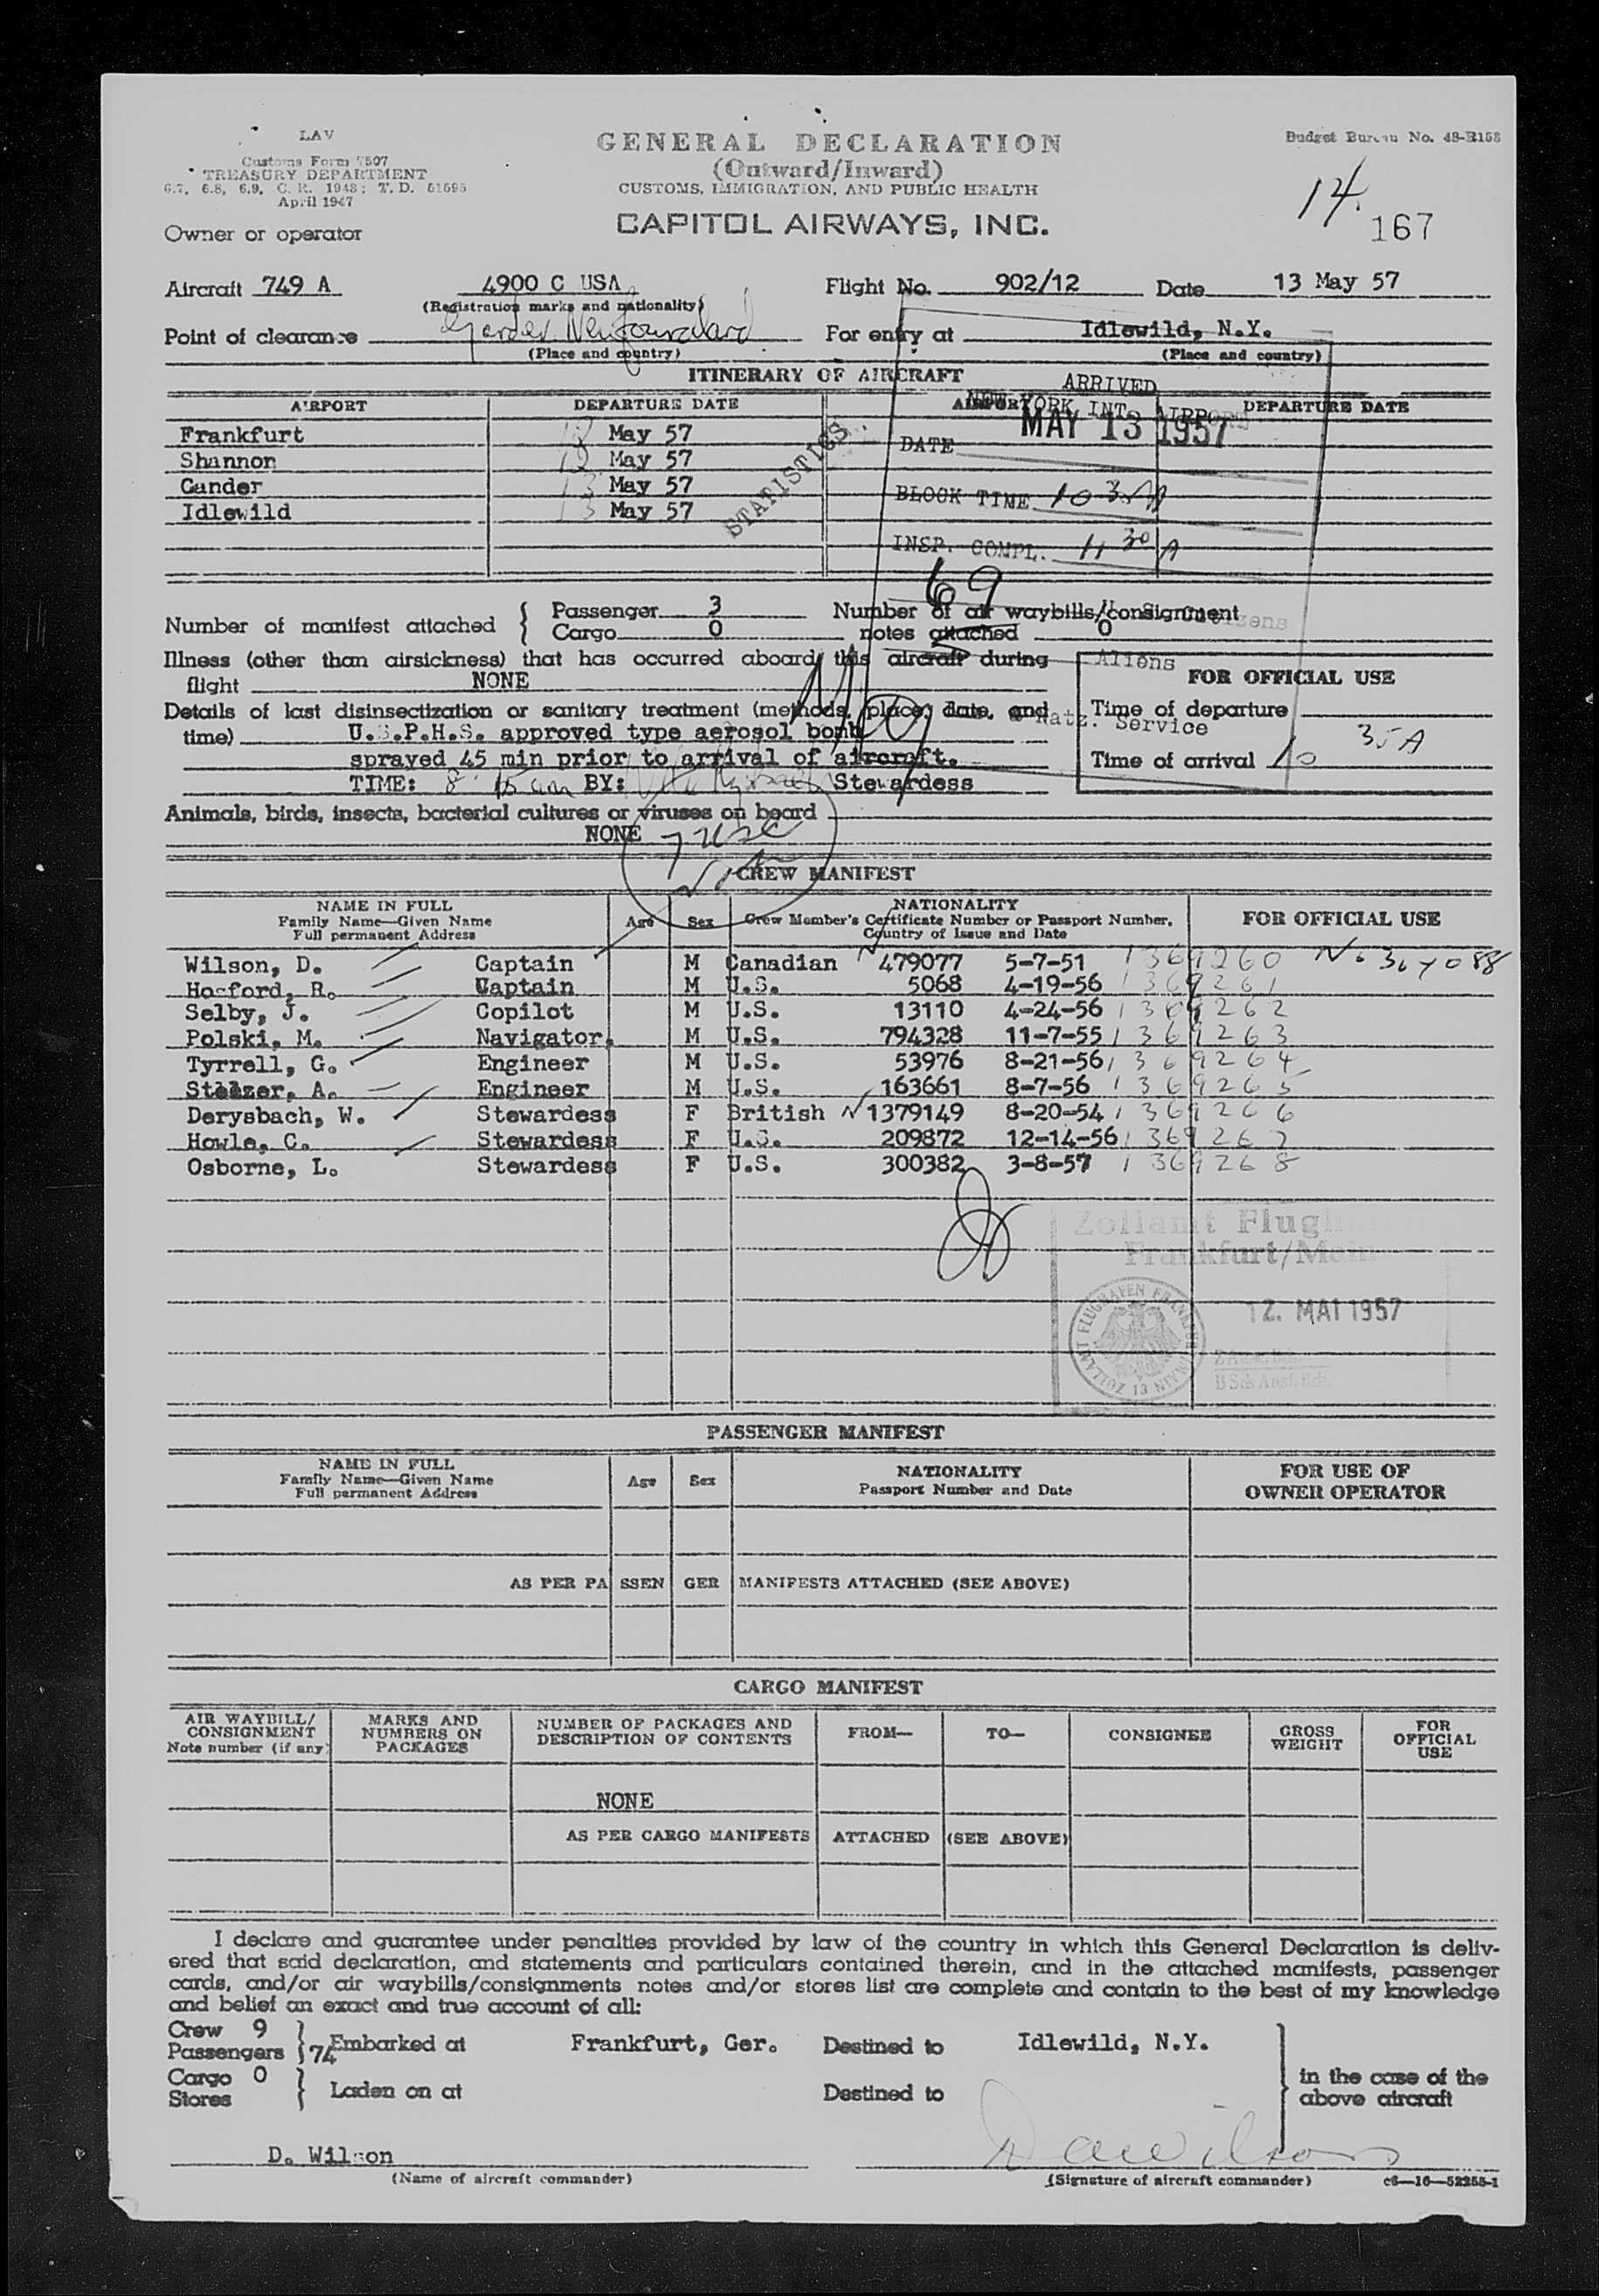 LAV
Customs Form 7507
TREASURY DEPARTMENT
6.7, 6.8, 6.9, C. R. 1948; T. D. 51595
April 1947
GENERAL DECLARATION
(Outward/Inward)
CUSTOMS, IMMIGRATION, AND PUBLIC HEALTH
CAPITOL AIRWAYS, INC.
Budget Bureau No. 48-R158
14.
167
Owner or operator
Aircraft 749 A 4900 C USA Flight No. 902/12 Date 13 May 57
(Registration marks and nationality)
Point of clearance Gander Newfoundland For entry at Idlewild, N.Y.
(Place and country) (Place and country)
ITINERARY OF AIRCRAFT
AIRPORT DEPARTURE DATE AIRPORT DEPARTURE DATE
Frankfurt May 57
Shannon 12 May 57
Gander 13 May 57
Idlewild 13 May 57
STATISTICS
ARRIVED
NEW YORK INT. AIRPORT
DATE MAY 13 1957
BLOCK TIME 10 35 A
INSP. COMPL. 11 30 A
69
Number of manifest attached { Passenger 3 Number of air waybills/consignment
Cargo 0 notes attached 0
U. S. Citizens
Aliens
Illness (other than airsickness) that has occurred aboard this aircraft during
flight NONE
Details of last disinsectization or sanitary treatment (methods, place, date, and
time) U.S.P.H.S. approved type aerosol bomb
sprayed 45 min prior to arrival of aircraft.
TIME: 8:15 am BY: Stewardess
Natz. Service
FOR OFFICIAL USE
Time of departure
Time of arrival 10 35 A
Animals, birds, insects, bacterial cultures or viruses on board
NONE
7 USC
CREW MANIFEST
NAME IN FULL
Family Name—Given Name
Full permanent Address
Age
Sex
NATIONALITY
Crew Member's Certificate Number or Passport Number,
Country of Issue and Date
FOR OFFICIAL USE
Wilson, D. Captain M Canadian N 479077 5-7-51 1369260
Hosford, R. Captain M U.S. 5068 4-19-56 1369261
Selby, J. Copilot M U.S. 13110 4-24-56 1369262
Polski, M. Navigator. M U.S. 794328 11-7-55 1369263
Tyrrell, G. Engineer M U.S. 53976 8-21-56 1369264
A. Engineer M U.S. 163661 8-7-56 1369265
Derysbach, W. Stewardess F British N 1379149 8-20-54 1369266
Howle, C. Stewardess F U.S. 209872 12-14-56 1369267
Osborne, L. Stewardess F U.S. 300382 3-8-57 1369268
Zollamt Flughafen
Frankfurt/Main
12. MAI 1957
ZOLLAMT FLUGHAFEN FRANKFURT MAIN
PASSENGER MANIFEST
NAME IN FULL
Family Name—Given Name
Full permanent Address
Age
Sex
NATIONALITY
Passport Number and Date
FOR USE OF
OWNER OPERATOR
AS PER PASSENGER MANIFESTS ATTACHED (SEE ABOVE)
CARGO MANIFEST
AIR WAYBILL/
CONSIGNMENT
Note number (if any)
MARKS AND
NUMBERS ON
PACKAGES
NUMBER OF PACKAGES AND
DESCRIPTION OF CONTENTS
FROM—
TO—
CONSIGNEE
GROSS
WEIGHT
FOR
OFFICIAL
USE
NONE
AS PER CARGO MANIFESTS ATTACHED (SEE ABOVE)
I declare and guarantee under penalties provided by law of the country in which this General Declaration is deliv-
ered that said declaration, and statements and particulars contained therein, and in the attached manifests, passenger
cards, and/or air waybills/consignments notes and/or stores list are complete and contain to the best of my knowledge
and belief an exact and true account of all:
Crew 9
Passengers 74 Embarked at Frankfurt, Ger. Destined to Idlewild, N.Y.
Cargo 0
Stores Laden on at Destined to
in the case of the
above aircraft
D. Wilson
(Name of aircraft commander) (Signature of aircraft commander) c6—16—52255-1